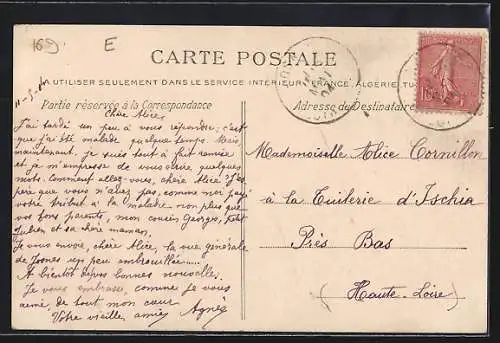 169
E
CARTE POSTALE
A UTILISER SEULEMENT DANS LE SERVICE INTÉRIEUR FRANCE, ALGÉRIE, TU
Partie réservée à la Correspondance
Adresse du Destinataire
Chère Alice,
J'ai tardé un peu à vous répondre; c'est
que j'ai été malade quelque temps. Mais
maintenant, je suis tout à fait remise
et je m'empresse de vous écrire quelques
mots. Comment allez-vous, chère Alice? J'es-
père que vous n'avez pas, comme moi payé
votre tribut à la maladie, non plus que
vos bons parents, mon cousin Georges, petit
Julien et sa chère maman.
Je vous envoie, chère Alice, la vue générale
de un peu embrouillée.....
A bientôt de vos bonnes nouvelles.
Je vous embrasse, comme je vous
aime, de tout mon cœur
Votre vieille amie, Agnès
Mademoiselle Alice Cornillon
à la Tuilerie d'Ischia
Près Bas
(Haute-Loire)